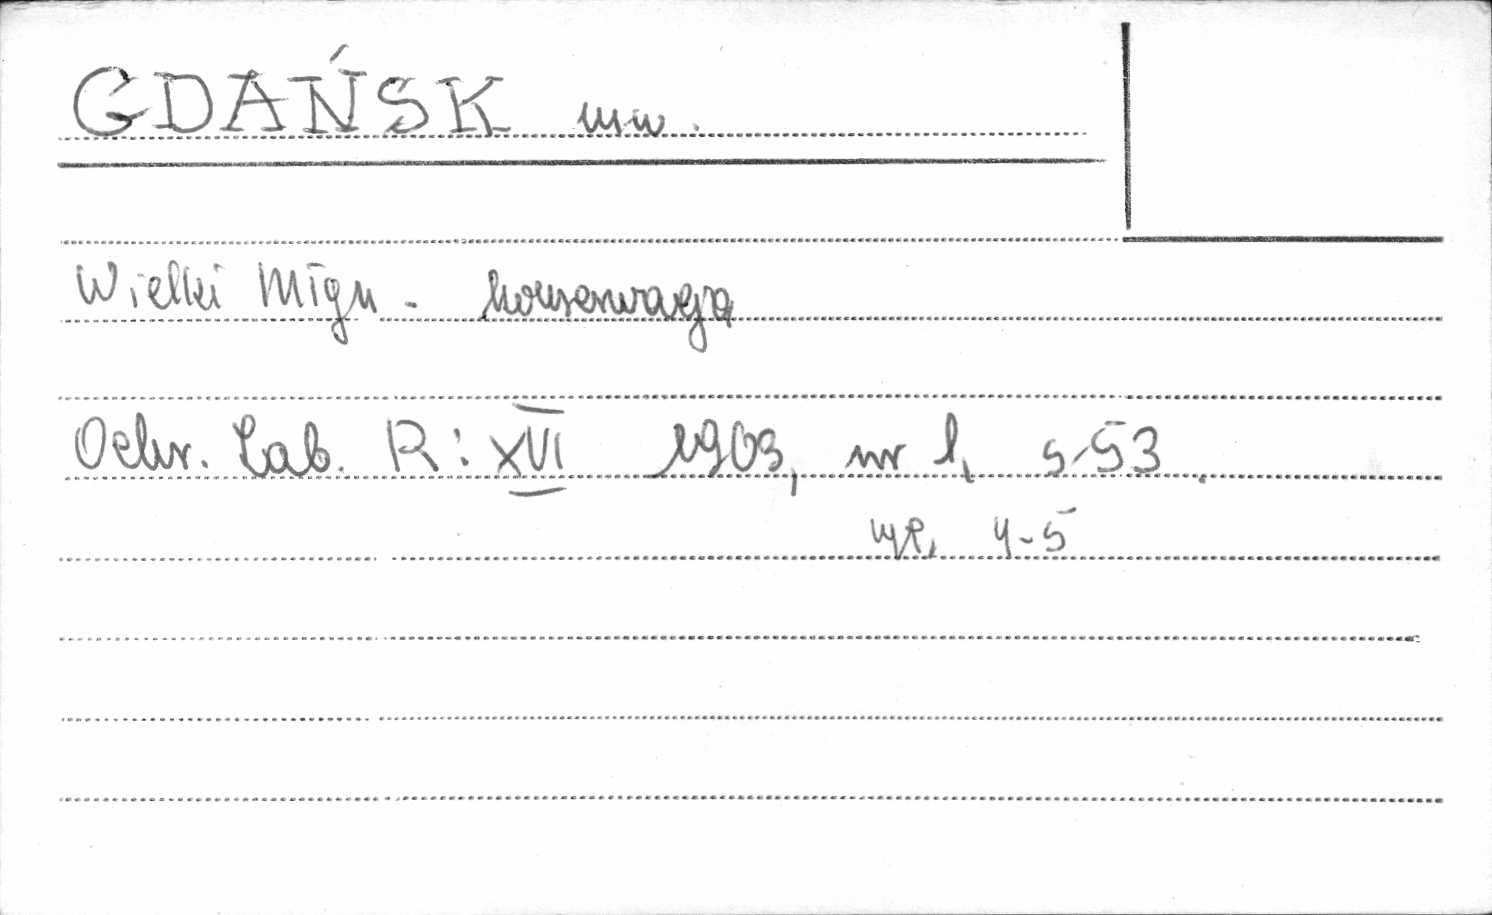 GDAŃSK mw.
Wielki Młyn - konserwacja
Ochr. Zab. R: XVI 1963, nr 1, s. 53.
yp. 4-5